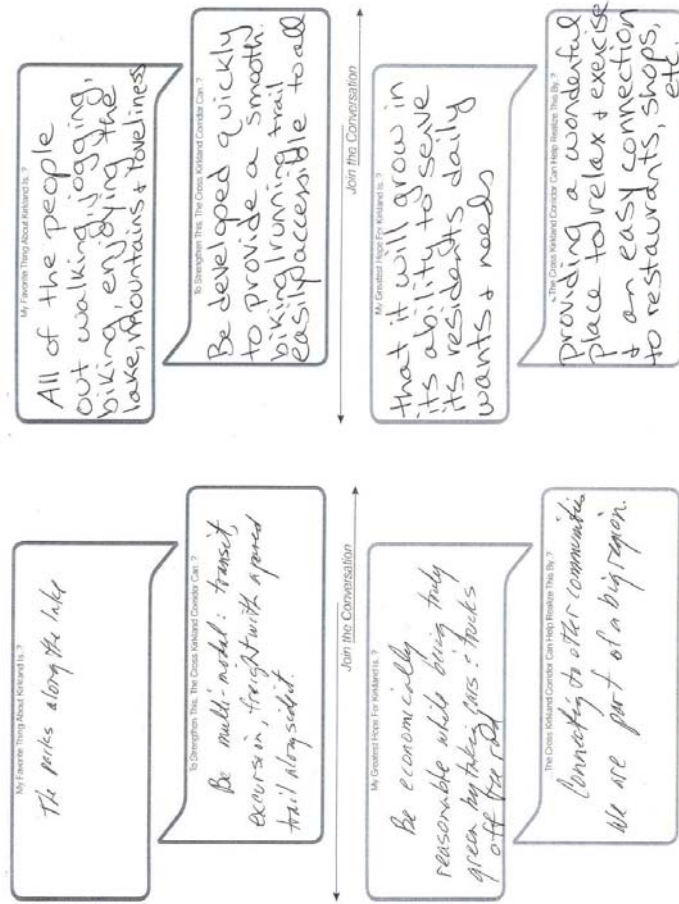 My Favorite Thing About Kirkland Is..?
The parks along the lake
To Strengthen This, The Cross Kirkland Corridor Can..?
Be multi-modal: transit,
excursion, freight with a paved
trail alongside it.
Join the Conversation
My Greatest Hope For Kirkland Is..?
Be economically
reasonable while being truly
green by taking cars & trucks
off the road
The Cross Kirkland Corridor Can Help Realize This By..?
Connecting to other communities
We are part of a big region.
My Favorite Thing About Kirkland Is..?
All of the people
out walking, jogging,
biking, enjoying the
lake, mountains & loveliness
To Strengthen This, The Cross Kirkland Corridor Can..?
Be developed quickly
to provide a smooth
biking/running trail
easily accessible to all
Join the Conversation
My Greatest Hope For Kirkland Is..?
that it will grow in
its ability to serve
its residents daily
wants & needs
The Cross Kirkland Corridor Can Help Realize This By..?
Providing a wonderful
place to relax & exercise
& an easy connection
to restaurants, shops,
etc.